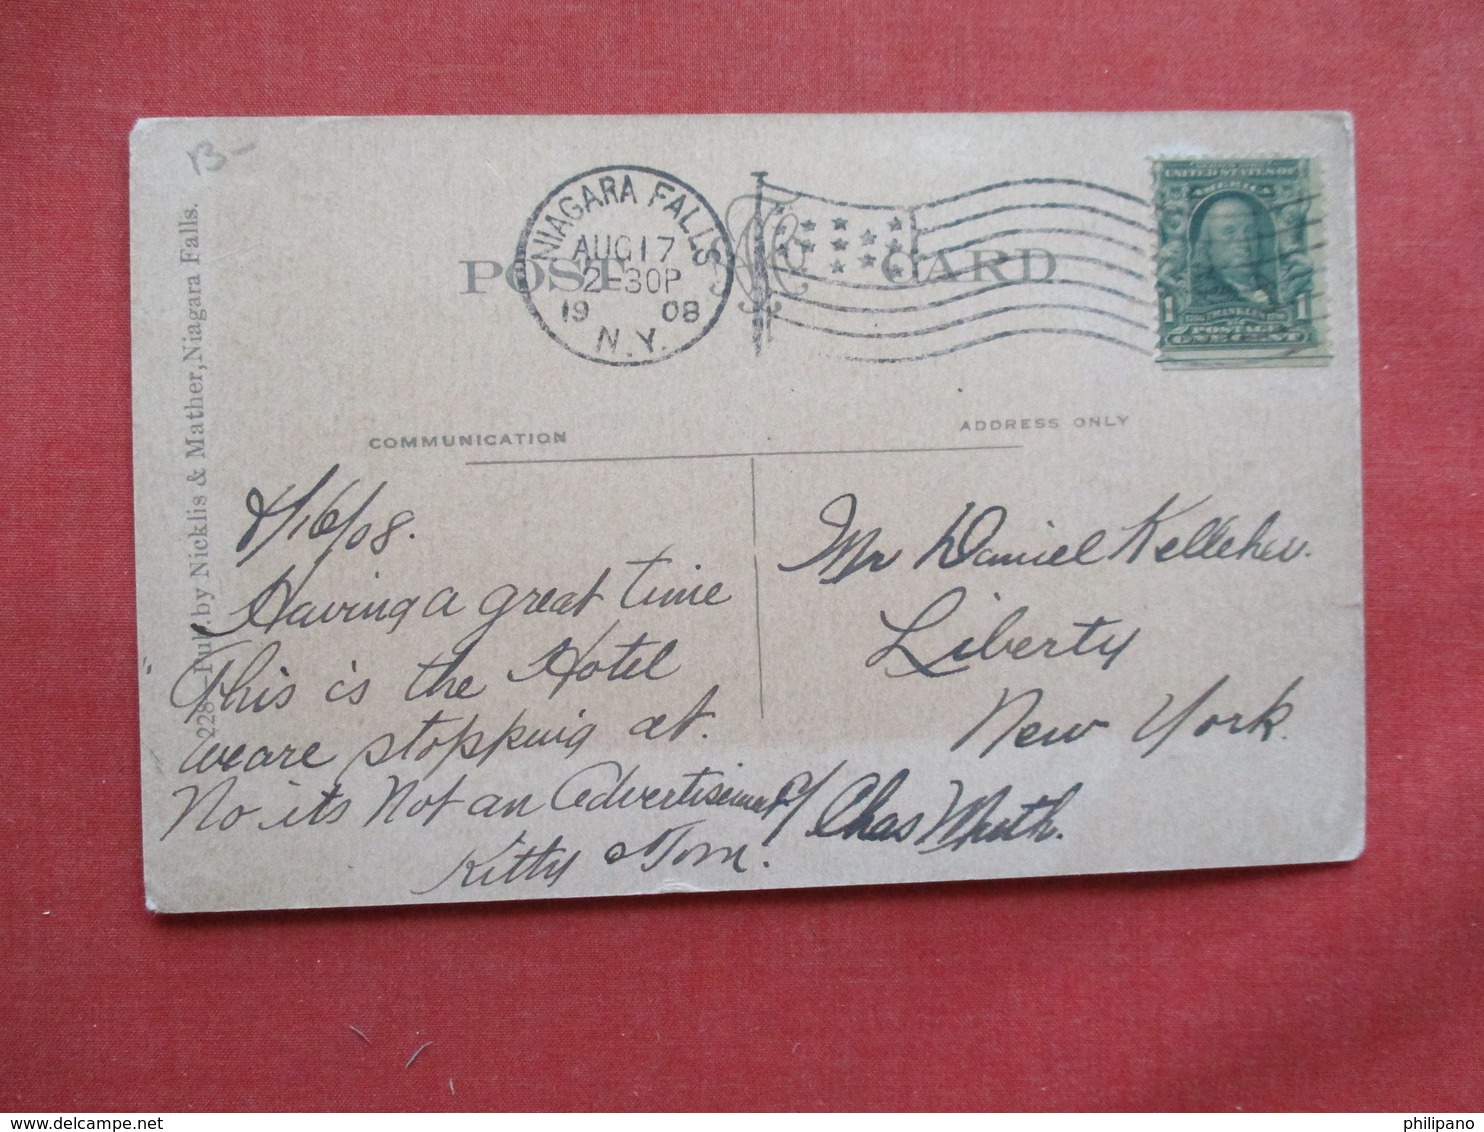 13-
NIAGARA FALLS
AUG 17
2-30P
19 08
N.Y.
POST CARD
UNITED STATES OF
AMERICA
1 1
FRANKLIN
POSTAGE
ONE CENT
COMMUNICATION
ADDRESS ONLY
228 Pub. by Nicklis & Mather, Niagara Falls.
8/16/08.
Having a great time
This is the Hotel
we are stopping at.
No its Not an Advertisement
Kitty & Tom.
Mr Daniel Kelleher.
Liberty
New York.
c/ Chas Muth.
philipano
delcampe.net